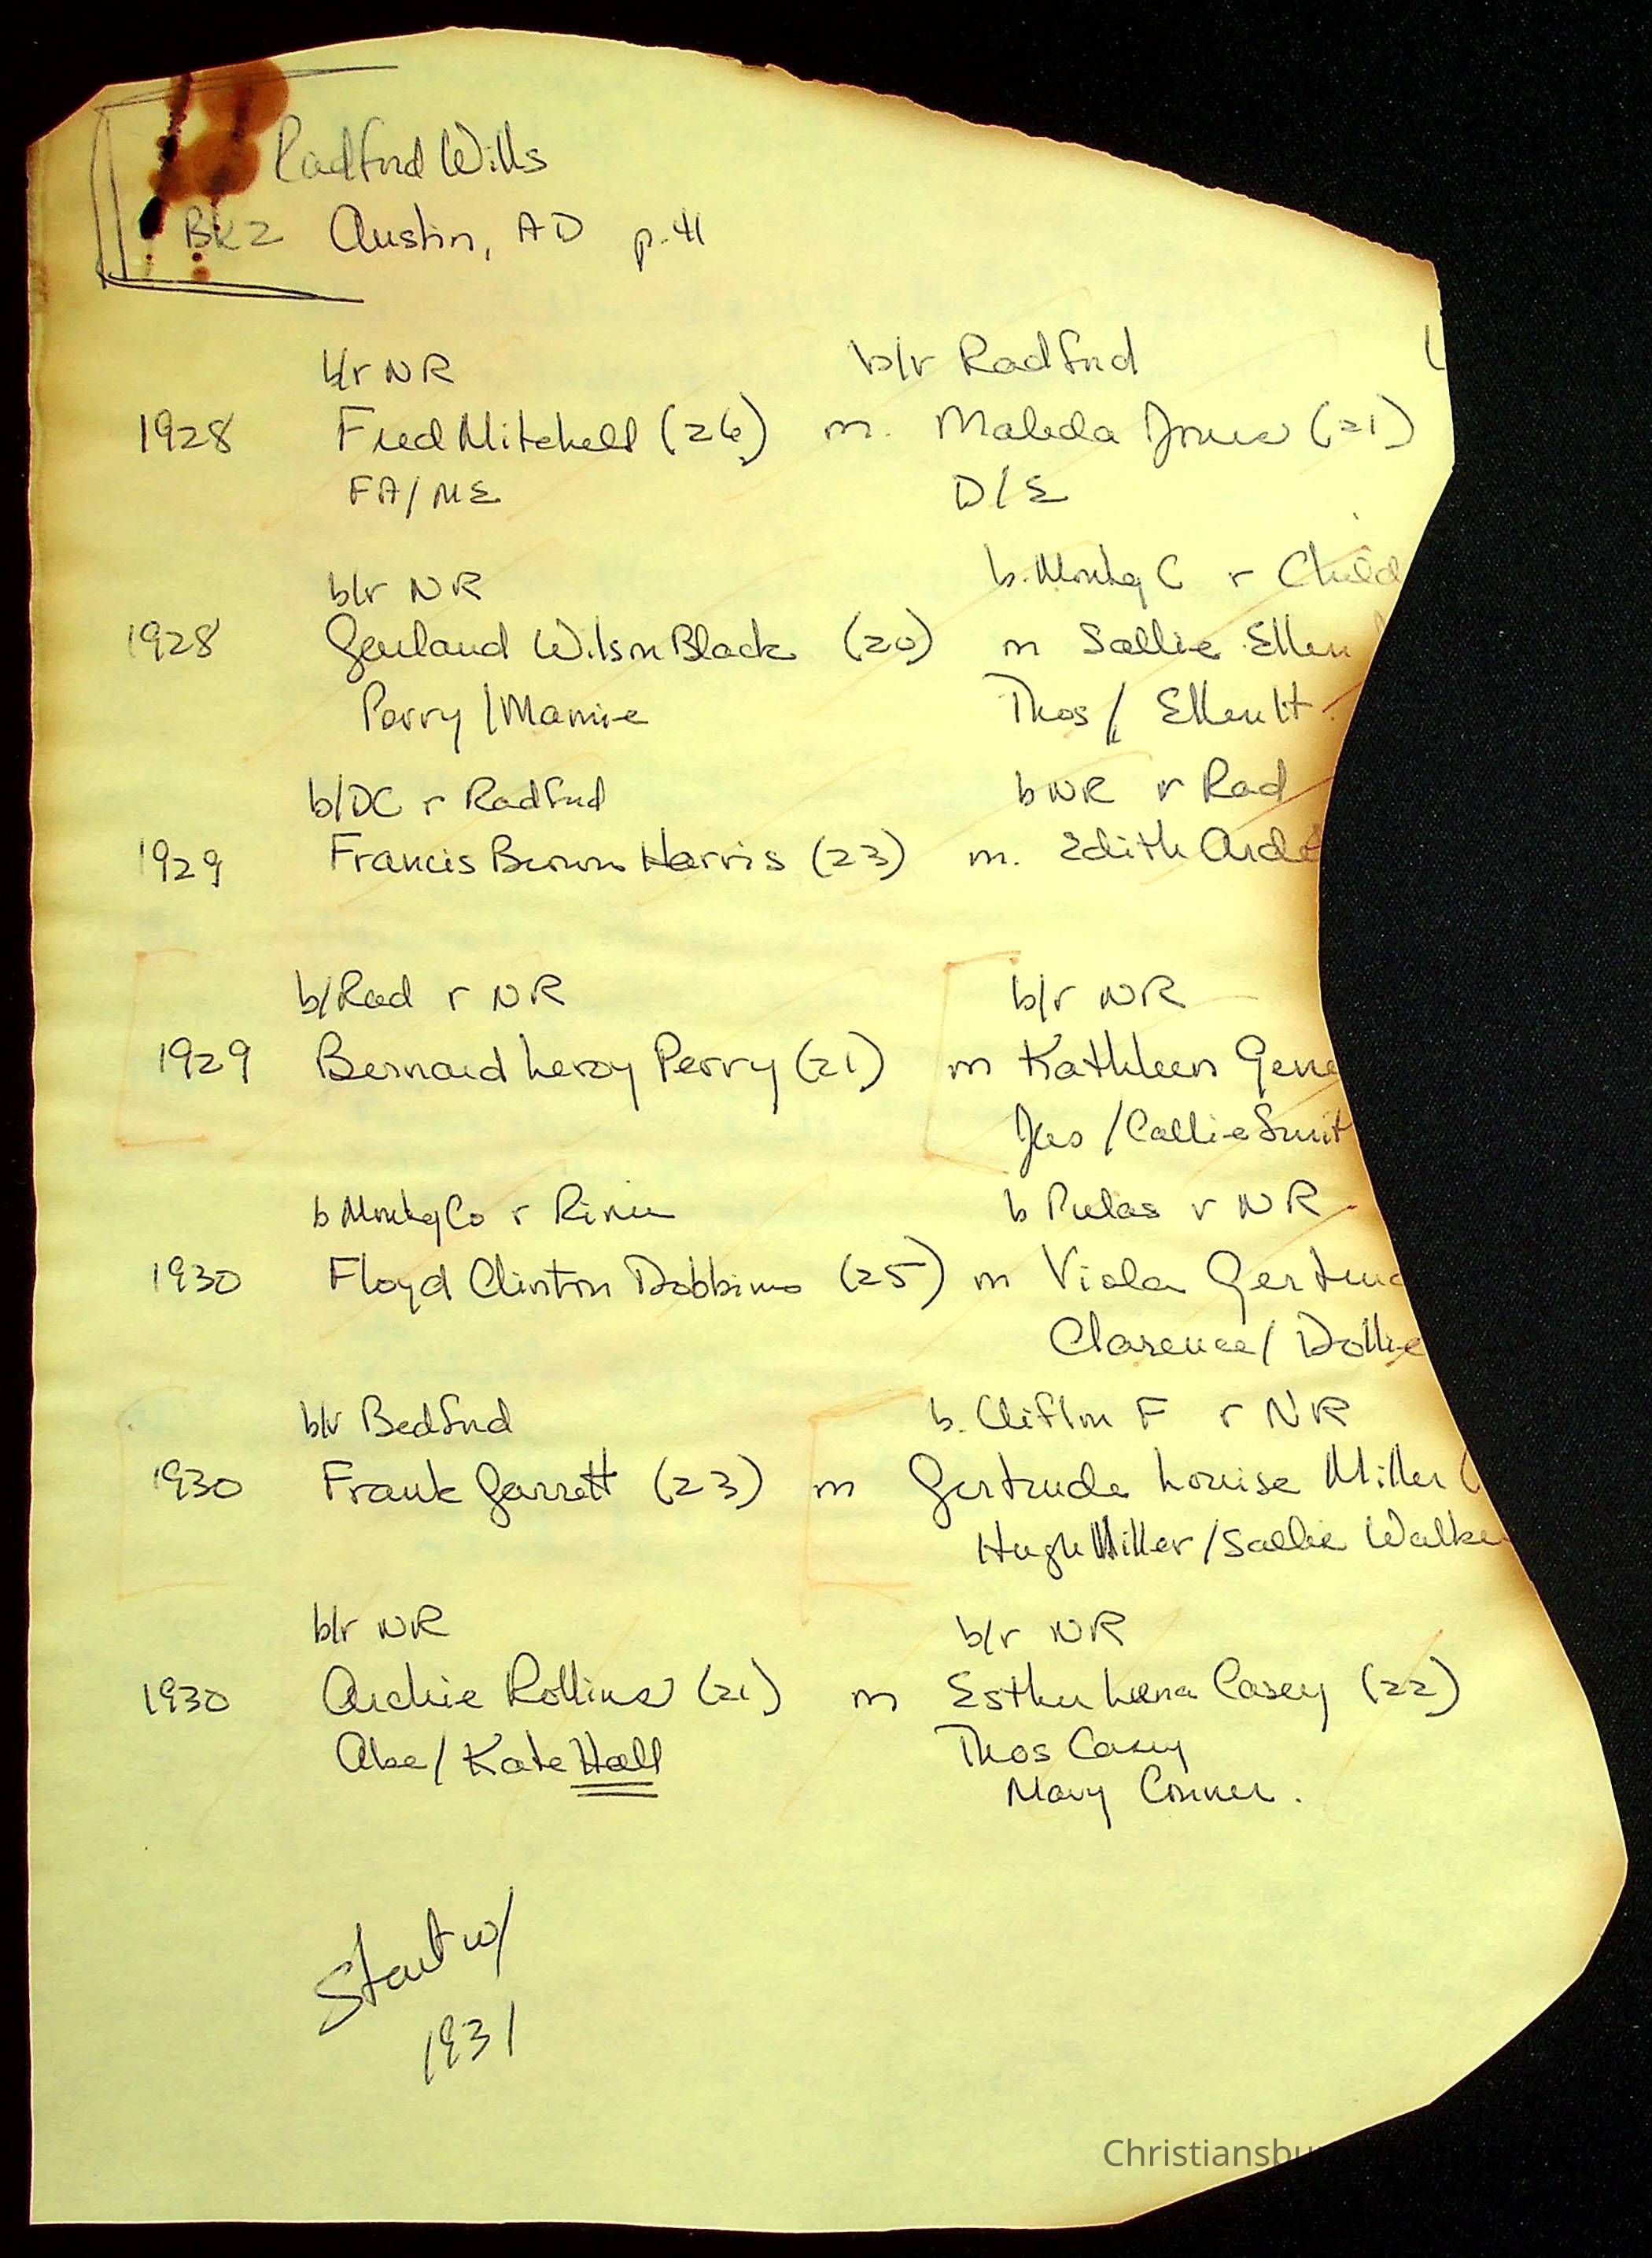 Radford Wills
BK2 Austin, AD p. 41
b/r NR b/r Radford
1928 Fred Mitchell (26) m. Maleda Jones (21)
FA/ME D/E
b/r NR b. Montg C r Child
1928 Garland Wilson Black (20) m Sallie Ellen
Perry / Mamie Thos / Ellen H
b/DC r Radford b NR r Rad
1929 Francis Brown Harris (23) m. Edith
b/Rad r NR b/r NR
1929 Bernard Leroy Perry (21) m Kathleen Gene
Jas / Callie Smit
b Montg Co r b Pulas r NR
1930 Floyd Clinton Dobbins (25) m Viola Gertrud
Clarence / Dollie
b/r Bedford b. Clifton F r NR
1930 Frank Garrett (23) m Gertrude Louise Miller (
Hugh Miller / Sallie Walke
b/r NR b/r NR
1930 Archie Rollins (21) m Esther Lena Casey (22)
Abe / Kate Hall Thos Casey
Mary Conner.
Start w/
1931
Christiansbu